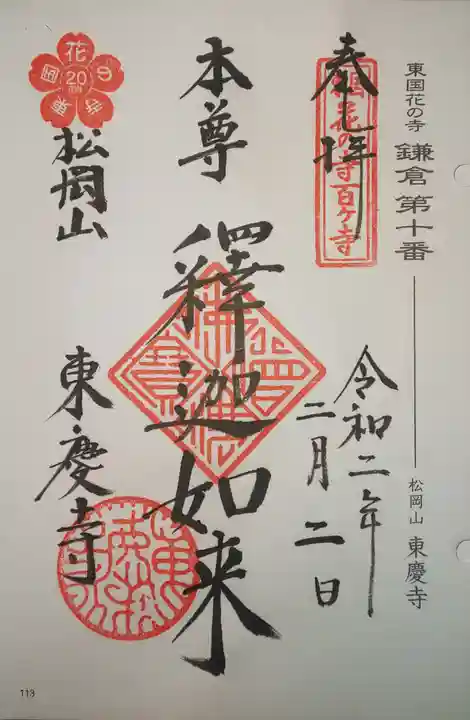 東国花の寺 鎌倉第十番
松岡山 東慶寺
奉拝
花の寺百ヶ寺
令和二年
二月二日
本尊
釋迦如来
松岡山
東慶寺
花
20
寺
東
国
113